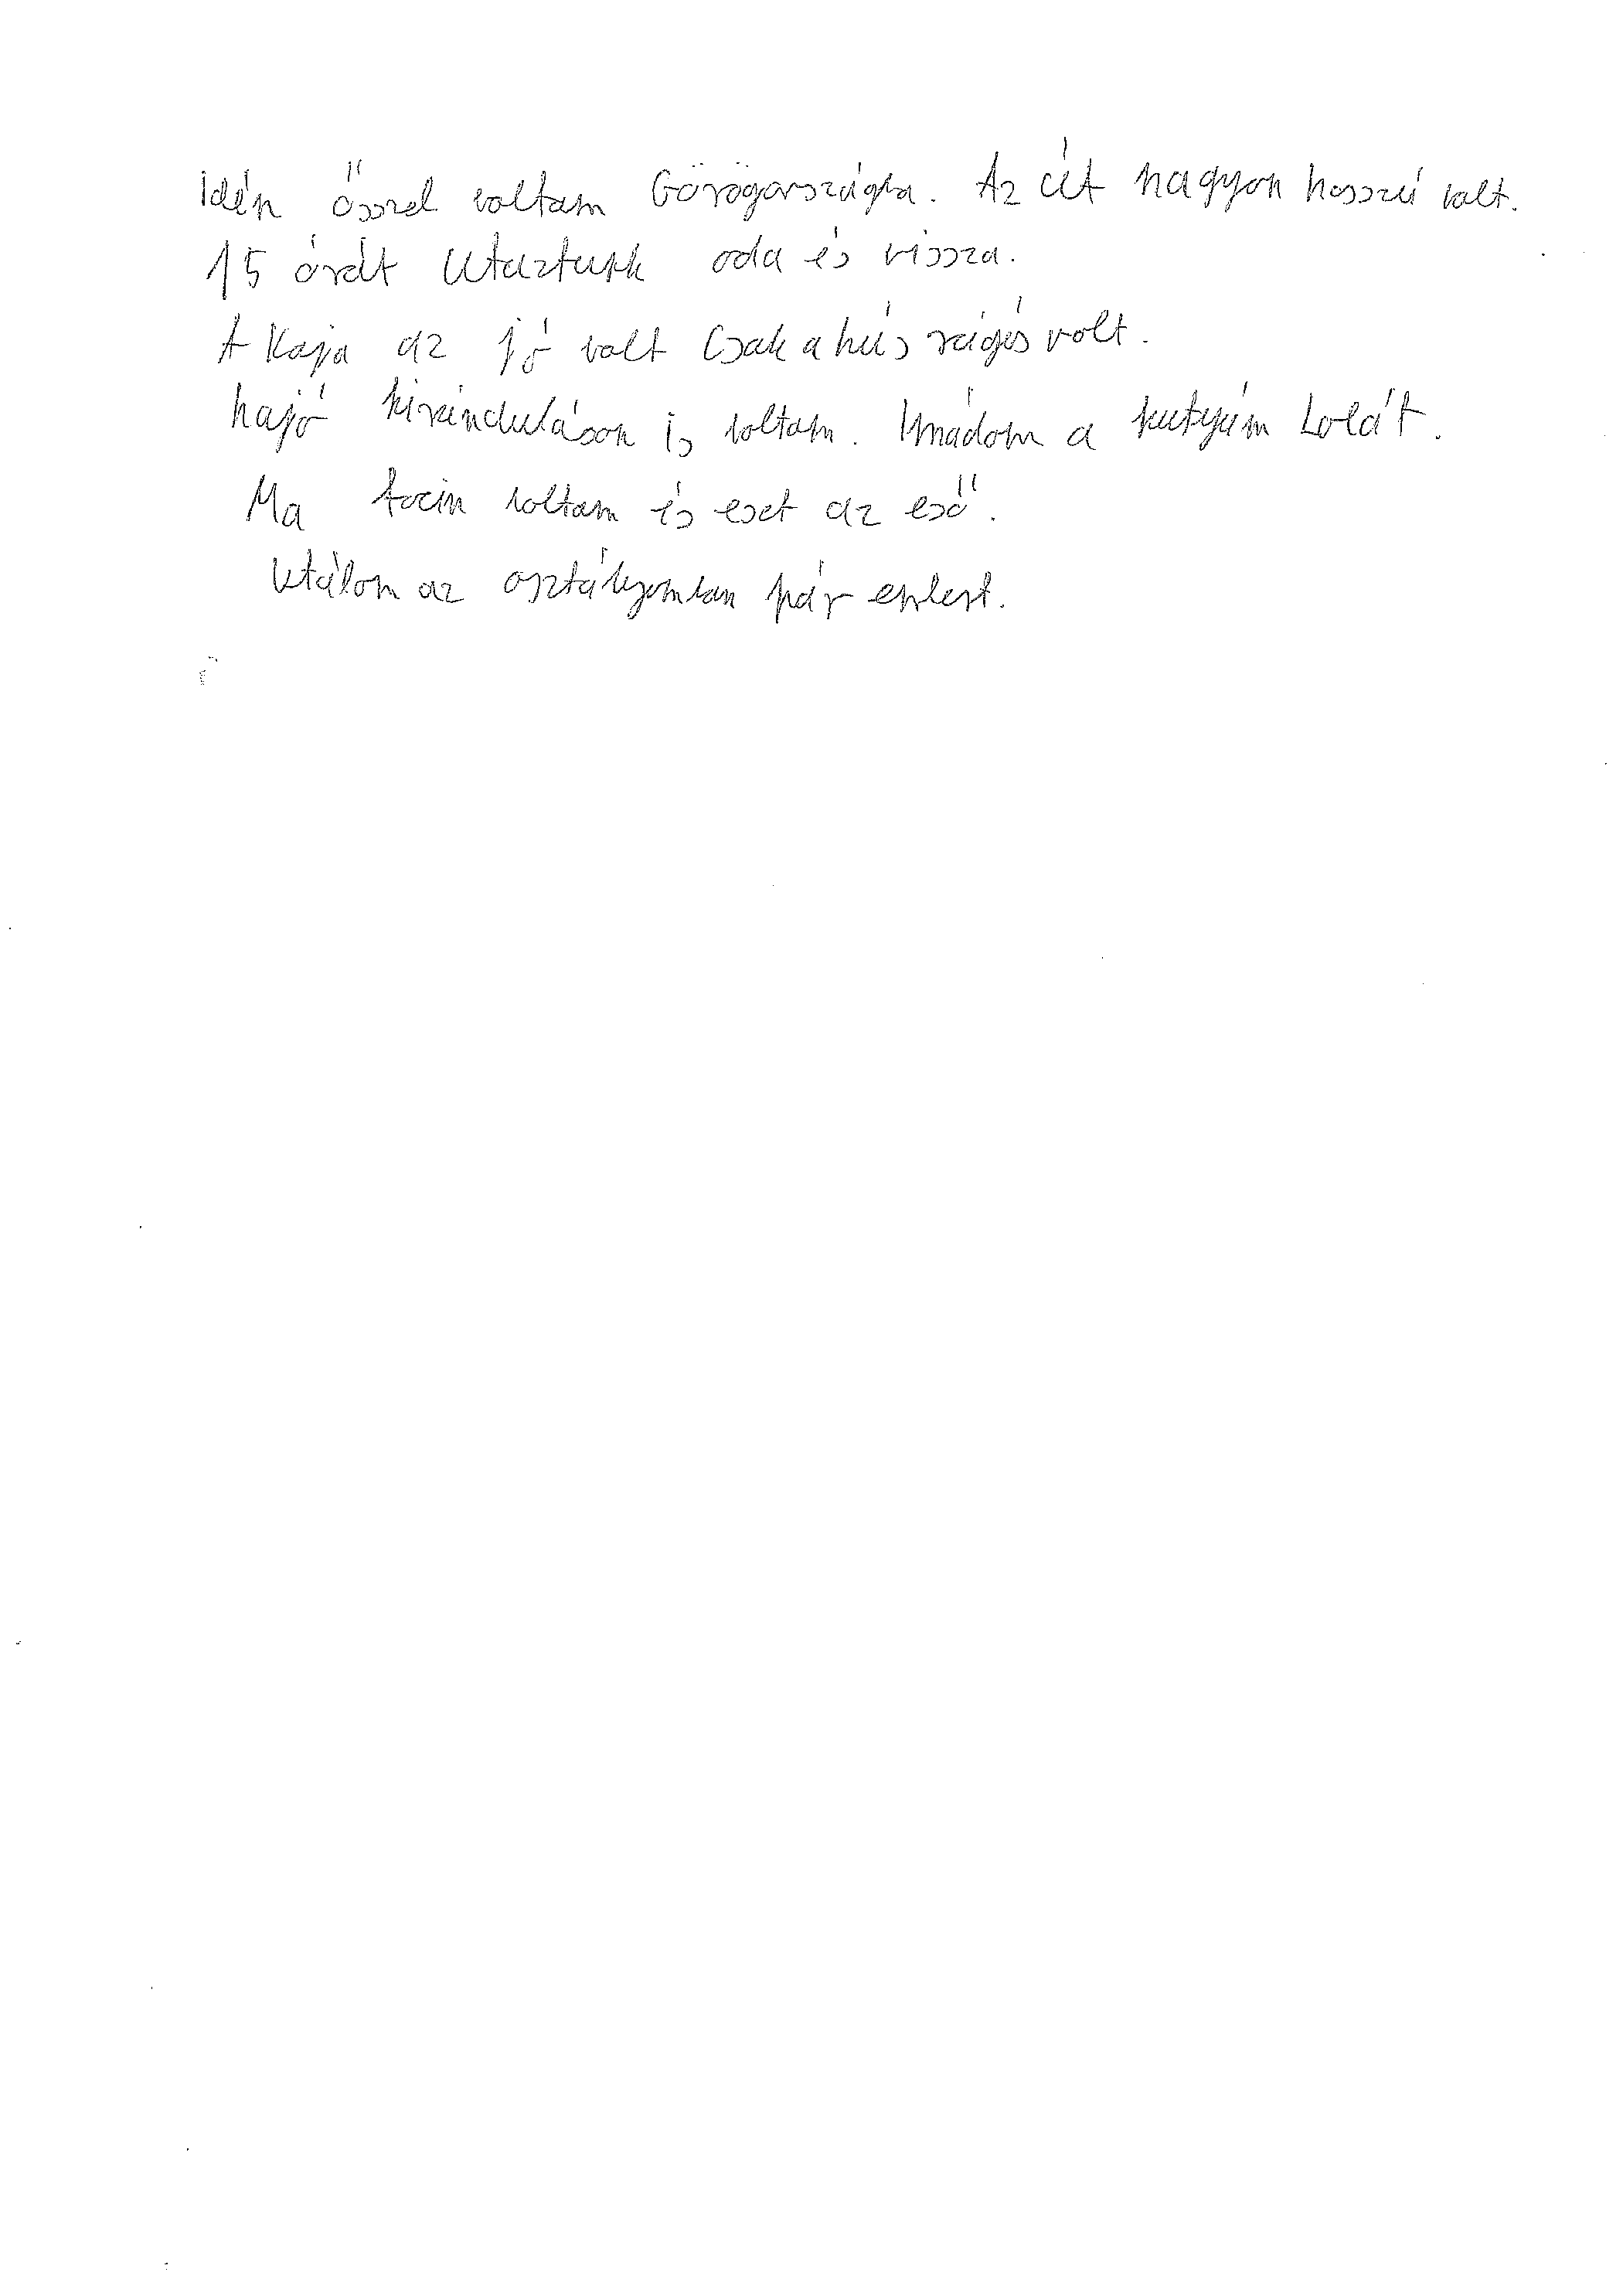 idén ősszel voltam Görögországba. Az út nagyon hosszú volt.
15 órát utaztunk oda és vissza.
A kaja az jó volt csak a hús rágós volt.
hajó kiránduláson is voltam. Imádom a kutyám Lolát.
Ma focin voltam és eset az eső.
Utálom az osztályomban pár embert.